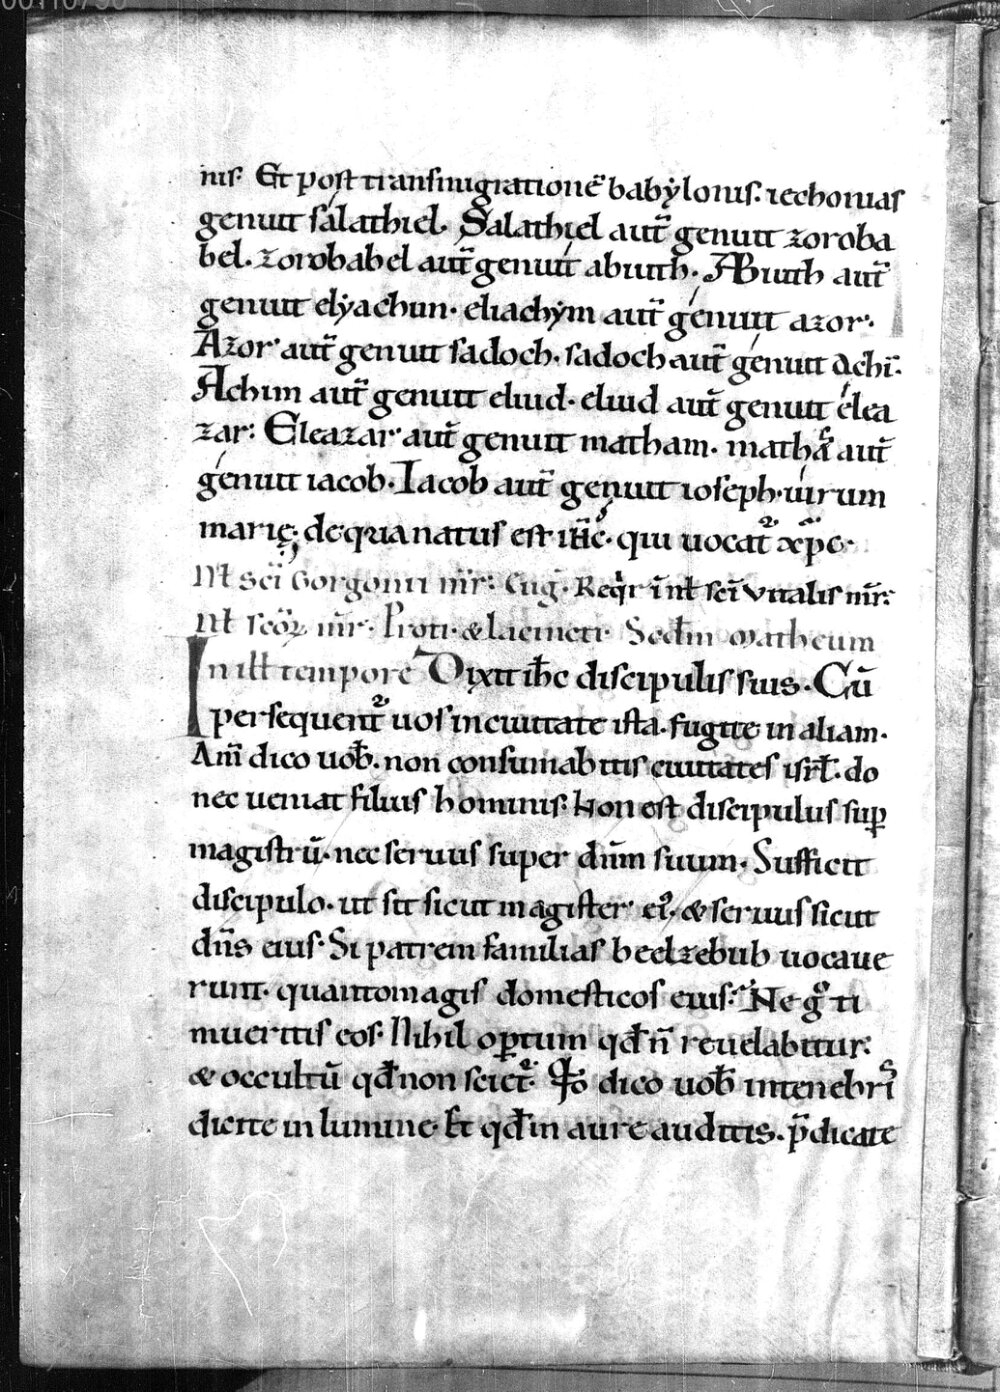 00110790
nis. Et post transmigrationē babẏlonis. iechonias
genuit salathiel. Salathiel aut̄ genuit zoroba
bel. zorobabel aut̄ genuit abiuth. ABiuth aut̄
genuit elẏachim. eliachẏm aut̄ genuit azor.
Azor aut̄ genuit sadoch. sadoch aut̄ genuit Achī.
Achim aut̄ genuit eliud. eliud aut̄ genuit elea
zar. Eleazar aut̄ genuit matham. mathā aut̄
genuit iacob. Iacob aut̄ genuit ioseph. uirum
marię. de qua natus est ih̄c. qui uocat᷑ xp̄c.
Nt̄ sc̄i Gorgonii mr̄. Euḡ. Reqr̄ in nt̄ sc̄i vitalis mr̄.
Nt̄ sc̄oꝝ mr̄. Proti. & Iacincti. Secd̄m Matheum
In ill̄ tempore Dixit ih̄c discipulis suis. Cū
persequent᷑ uos in ciuitate ista. fugite in aliam.
Am̄ dico uob̄. non consumabitis ciuitates isrl̄. do
nec ueniat filius hominis. Non est discipulus suꝑ
magistrū. nec seruus super dn̄m suum. Sufficit
discipulo. ut sit sicut magister ei᷒. & seruus sicut
dn̄s eius. Si patrem familias beelzebub uocaue
runt. quanto magis domesticos eius. Ne gͦ ti
mueritis eos. Nihil oꝑtum qd̄ n̄ reuelabitur.
& occultū qd̄ non sciet᷑. Qͦd dico uob̄ in tenebris
dicite in lumine. Et qd̄ in aure auditis. p̄dicate